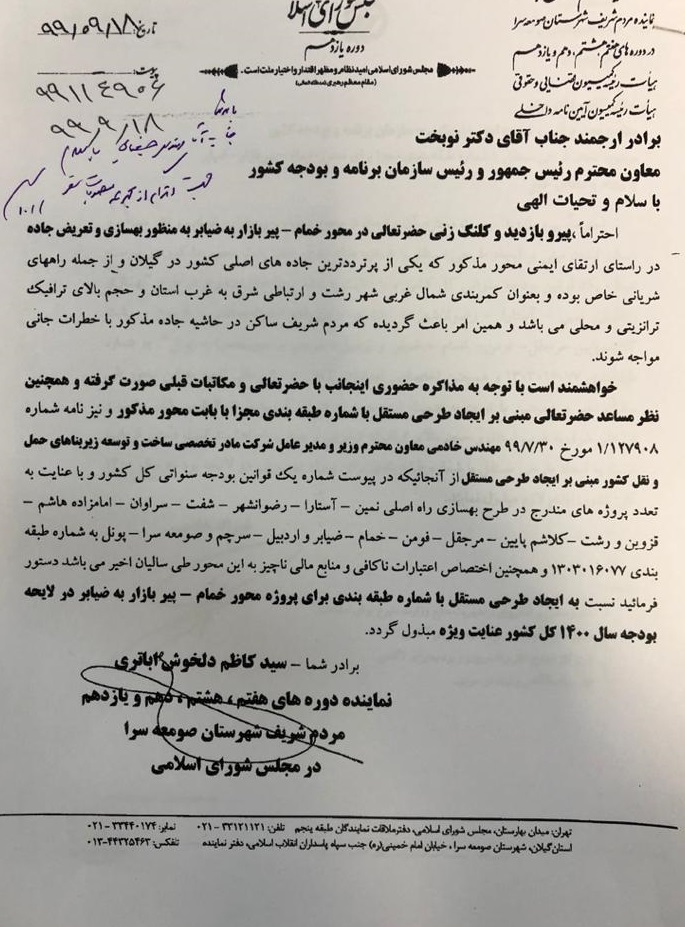 مجلس شورای اسلامی
دوره یازدهم
مجلس شورای اسلامی امید نظام و مظهر اقتدار و اختیار ملت است.
(مقام معظم رهبری)
نماینده مردم شریف شهرستان صومعه سرا
در دوره های هفتم، هشتم، دهم و یازدهم
هیأت رئیسه کمیسیون قضایی و حقوقی
هیأت رئیسه کمیسیون آیین نامه داخلی
تاریخ: ۹۹/۰۹/۱۸
پیوست:
۹۹۱۱۴۹۰۶
۹۹/۹/۱۸
برادر ارجمند جناب آقای دکتر نوبخت
معاون محترم رئیس جمهور و رئیس سازمان برنامه و بودجه کشور
با سلام و تحیات الهی
احتراماً ،پیرو بازدید و کلنگ زنی حضرتعالی در محور خمام – پیر بازار به ضیابر به منظور بهسازی و تعریض جاده
در راستای ارتقای ایمنی محور مذکور که یکی از پرترددترین جاده های اصلی کشور در گیلان و از جمله راههای
شریانی خاص بوده و بعنوان کمربندی شمال غربی شهر رشت و ارتباطی شرق به غرب استان و حجم بالای ترافیک
ترانزیتی و محلی می باشد و همین امر باعث گردیده که مردم شریف ساکن در حاشیه جاده مذکور با خطرات جانی
مواجه شوند.
خواهشمند است با توجه به مذاکره حضوری اینجانب با حضرتعالی و مکاتبات قبلی صورت گرفته و همچنین
نظر مساعد حضرتعالی مبنی بر ایجاد طرحی مستقل با شماره طبقه بندی مجزا با بابت محور مذکور و نیز نامه شماره
۱/۱۲۷۹۰۸ مورخ ۹۹/۷/۳۰ مهندس خادمی معاون محترم وزیر و مدیر عامل شرکت مادر تخصصی ساخت و توسعه زیربناهای حمل
و نقل کشور مبنی بر ایجاد طرحی مستقل از آنجائیکه در پیوست شماره یک قوانین بودجه سنواتی کل کشور و با عنایت به
تعدد پروژه های مندرج در طرح بهسازی راه اصلی نمین – آستارا – رضوانشهر – شفت – سراوان – امامزاده هاشم –
قزوین و رشت –کلاشم پایین – مرجقل – فومن – خمام – ضیابر و اردبیل – سرچم و صومعه سرا – پونل به شماره طبقه
بندی ۱۳۰۳۰۱۶۰۷۷ و همچنین اختصاص اعتبارات ناکافی و منابع مالی ناچیز به این محور طی سالیان اخیر می باشد دستور
فرمائید نسبت به ایجاد طرحی مستقل با شماره طبقه بندی برای پروژه محور خمام – پیر بازار به ضیابر در لایحه
بودجه سال ۱۴۰۰ کل کشور عنایت ویژه مبذول گردد.
برادر شما – سید کاظم دلخوش اباتری
نماینده دوره های هفتم ، هشتم ، دهم و یازدهم
مردم شریف شهرستان صومعه سرا
در مجلس شورای اسلامی
تهران: میدان بهارستان، مجلس شورای اسلامی، دفتر ملاقات نمایندگان طبقه پنجم تلفن: ۳۳۱۲۱۱۲۱ - ۰۲۱ نمابر: ۳۳۴۴۰۱۷۴ - ۰۲۱
استان گیلان، شهرستان صومعه سرا ، خیابان امام خمینی(ره) جنب سپاه پاسداران انقلاب اسلامی، دفتر نماینده تلفکس: ۴۴۳۲۵۴۶۳-۰۱۳